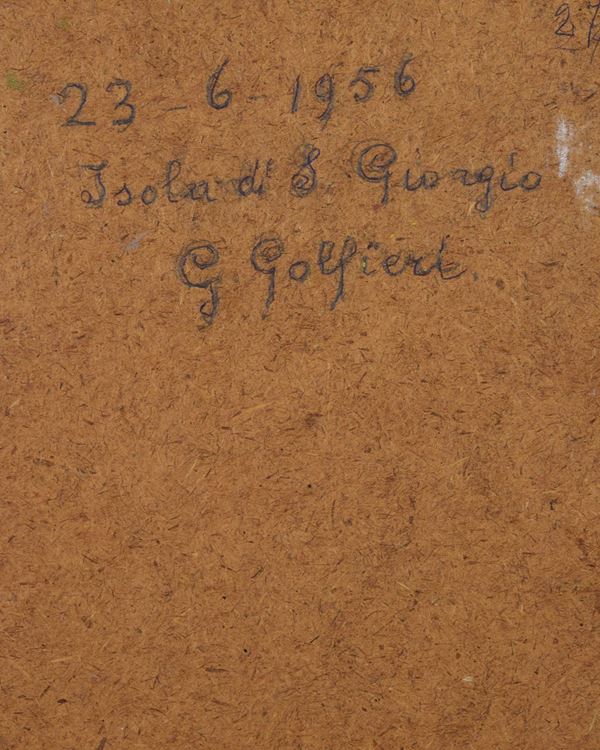 27
23-6-1956
Isola di S. Giorgio
G. Golfieri.